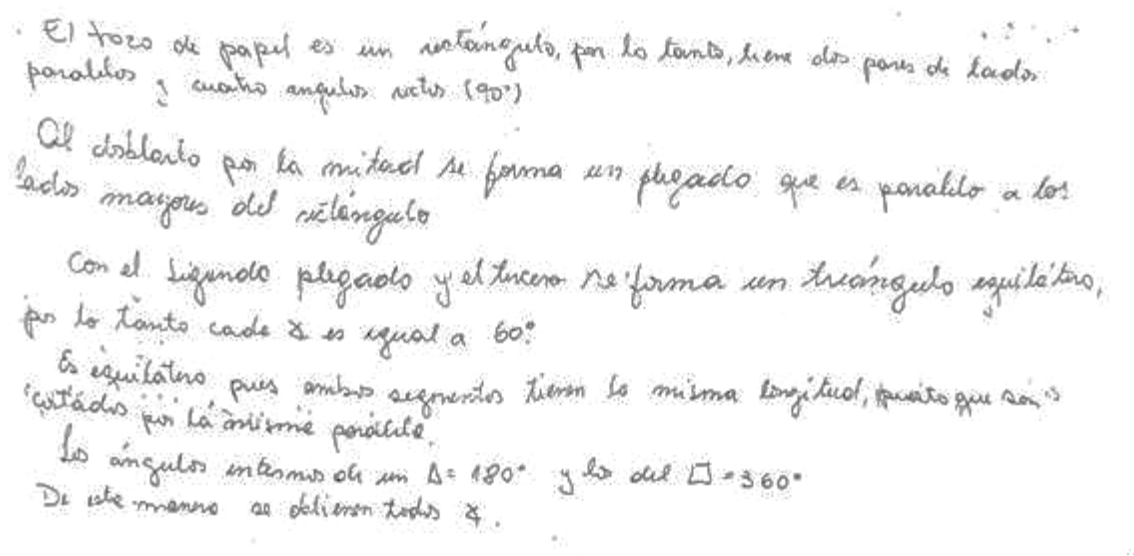 . El trozo de papel es un rectángulo, por lo tanto, tiene dos pares de lados
paralelos y cuatro angulos rectos (90°)
Al doblarlo por la mitad se forma un plegado que es paralelo a los
lados mayores del rectángulo
Con el segundo plegado y el tercero se forma un triángulo equilátero,
por lo tanto cada ∡ es igual a 60°
Es equilátero pues ambos segmentos tienen la misma longitud, puesto que son
cortados por la misma paralela.
Los ángulos internos de un Δ= 180° y los del □=360°
De esta manera se obtienen todos ∡.